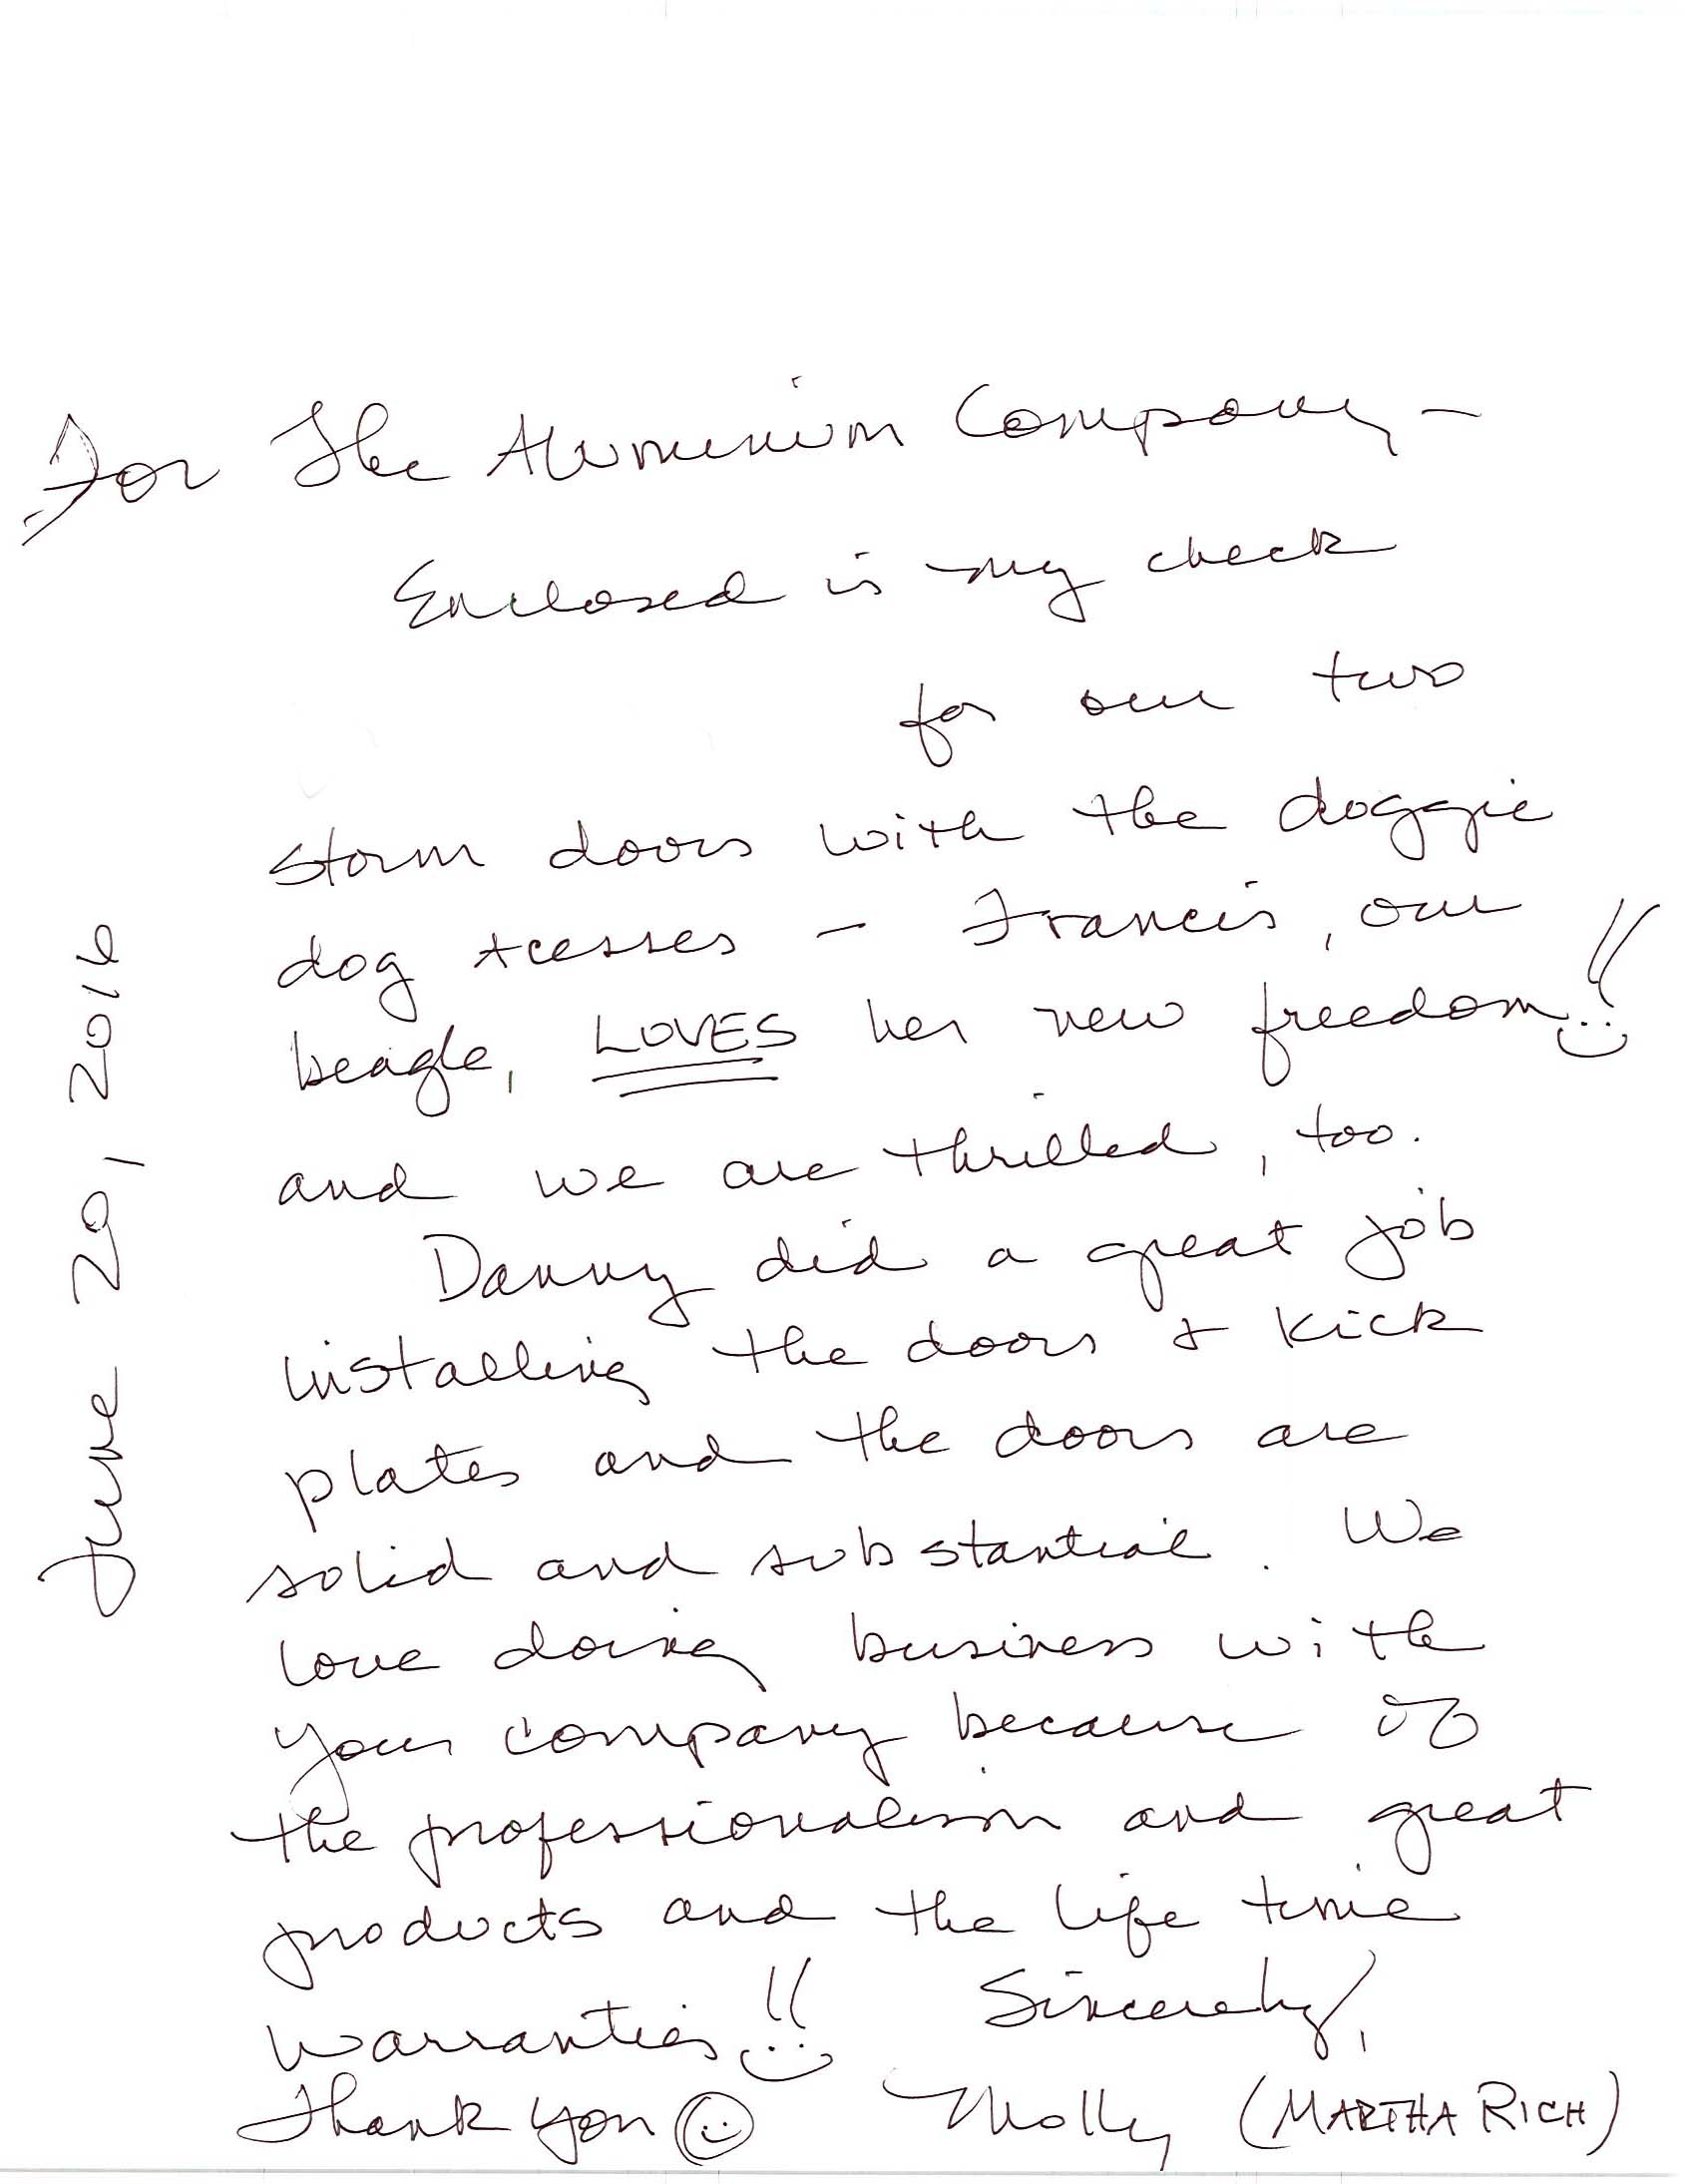 For The Aluminum Company –
Enclosed is my check
for our two
storm doors with the doggie
dog acesses – Francis, our
beagle, LOVES her new freedom!!
and we are thrilled, too.
Danny did a great job
installing the doors & kick
plates and the doors are
solid and substantial. We
love doing business with
your company because of
the professionalism and great
products and the life time
warranties!! Sincerely,
Thank you Molly (MARTHA RICH)
June 20, 2016